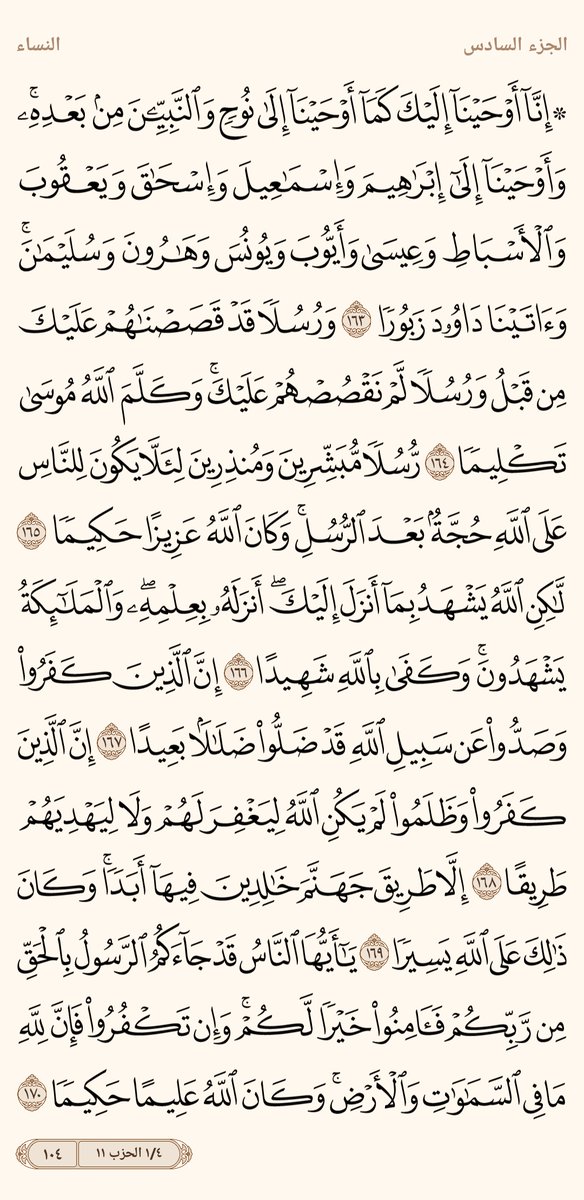 الجزء السادس
النساء
۞ إِنَّآ أَوْحَيْنَآ إِلَيْكَ كَمَآ أَوْحَيْنَآ إِلَىٰ نُوحٍ وَٱلنَّبِيِّـۧنَ مِنۢ بَعْدِهِۦۚ
وَأَوْحَيْنَآ إِلَىٰٓ إِبْرَٰهِيمَ وَإِسْمَٰعِيلَ وَإِسْحَٰقَ وَيَعْقُوبَ
وَٱلْأَسْبَاطِ وَعِيسَىٰ وَأَيُّوبَ وَيُونُسَ وَهَٰرُونَ وَسُلَيْمَٰنَۚ
وَءَاتَيْنَا دَاوُۥدَ زَبُورًا ١٦٣ وَرُسُلًا قَدْ قَصَصْنَٰهُمْ عَلَيْكَ
مِن قَبْلُ وَرُسُلًا لَّمْ نَقْصُصْهُمْ عَلَيْكَۚ وَكَلَّمَ ٱللَّهُ مُوسَىٰ
تَكْلِيمًا ١٦٤ رُّسُلًا مُّبَشِّرِينَ وَمُنذِرِينَ لِئَلَّا يَكُونَ لِلنَّاسِ
عَلَى ٱللَّهِ حُجَّةٌۢ بَعْدَ ٱلرُّسُلِۚ وَكَانَ ٱللَّهُ عَزِيزًا حَكِيمًا ١٦٥
لَّٰكِنِ ٱللَّهُ يَشْهَدُ بِمَآ أَنزَلَ إِلَيْكَۖ أَنزَلَهُۥ بِعِلْمِهِۦۖ وَٱلْمَلَٰٓئِكَةُ
يَشْهَدُونَۚ وَكَفَىٰ بِٱللَّهِ شَهِيدًا ١٦٦ إِنَّ ٱلَّذِينَ كَفَرُوا۟
وَصَدُّوا۟ عَن سَبِيلِ ٱللَّهِ قَدْ ضَلُّوا۟ ضَلَٰلًۢا بَعِيدًا ١٦٧ إِنَّ ٱلَّذِينَ
كَفَرُوا۟ وَظَلَمُوا۟ لَمْ يَكُنِ ٱللَّهُ لِيَغْفِرَ لَهُمْ وَلَا لِيَهْدِيَهُمْ
طَرِيقًا ١٦٨ إِلَّا طَرِيقَ جَهَنَّمَ خَٰلِدِينَ فِيهَآ أَبَدًاۚ وَكَانَ
ذَٰلِكَ عَلَى ٱللَّهِ يَسِيرًا ١٦٩ يَٰٓأَيُّهَا ٱلنَّاسُ قَدْ جَآءَكُمُ ٱلرَّسُولُ بِٱلْحَقِّ
مِن رَّبِّكُمْ فَـَٔامِنُوا۟ خَيْرًا لَّكُمْۚ وَإِن تَكْفُرُوا۟ فَإِنَّ لِلَّهِ
مَا فِى ٱلسَّمَٰوَٰتِ وَٱلْأَرْضِۚ وَكَانَ ٱللَّهُ عَلِيمًا حَكِيمًا ١٧٠
١/٤ الحزب ١١
١٠٤